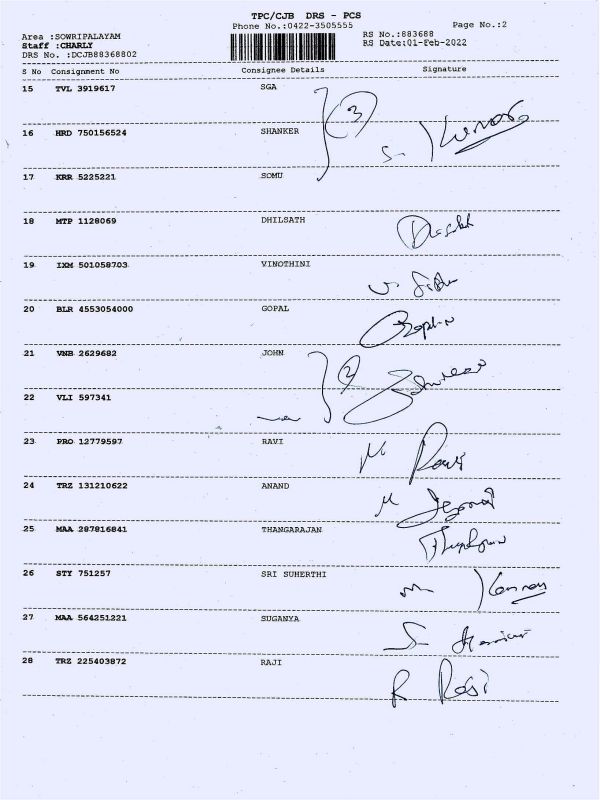 TPC/CJB DRS - PCS
Phone No.:0422-3505555
Page No.:2
Area :SOWRIPALAYAM
Staff :CHARLY
DRS No. :DCJB88368802
RS No.:883688
RS Date:01-Feb-2022
S No Consignment No Consignee Details Signature
15 TVL 3919617 SGA
3
16 HRD 750156524 SHANKER
S- Kumar
17 KRR 5225221 SOMU
18 MTP 1128069 DHILSATH
19 IXM 501058703 VINOTHINI
20 BLR 4553054000 GOPAL
21 VNB 2629682 JOHN
2
22 VLI 597341
23 PRO 12779597 RAVI
M Ravi
24 TRZ 131210622 ANAND
25 MAA 287816841 THANGARAJAN
26 STY 751257 SRI SUHERTHI
27 MAA 564251221 SUGANYA
28 TRZ 225403872 RAJI
R Raji